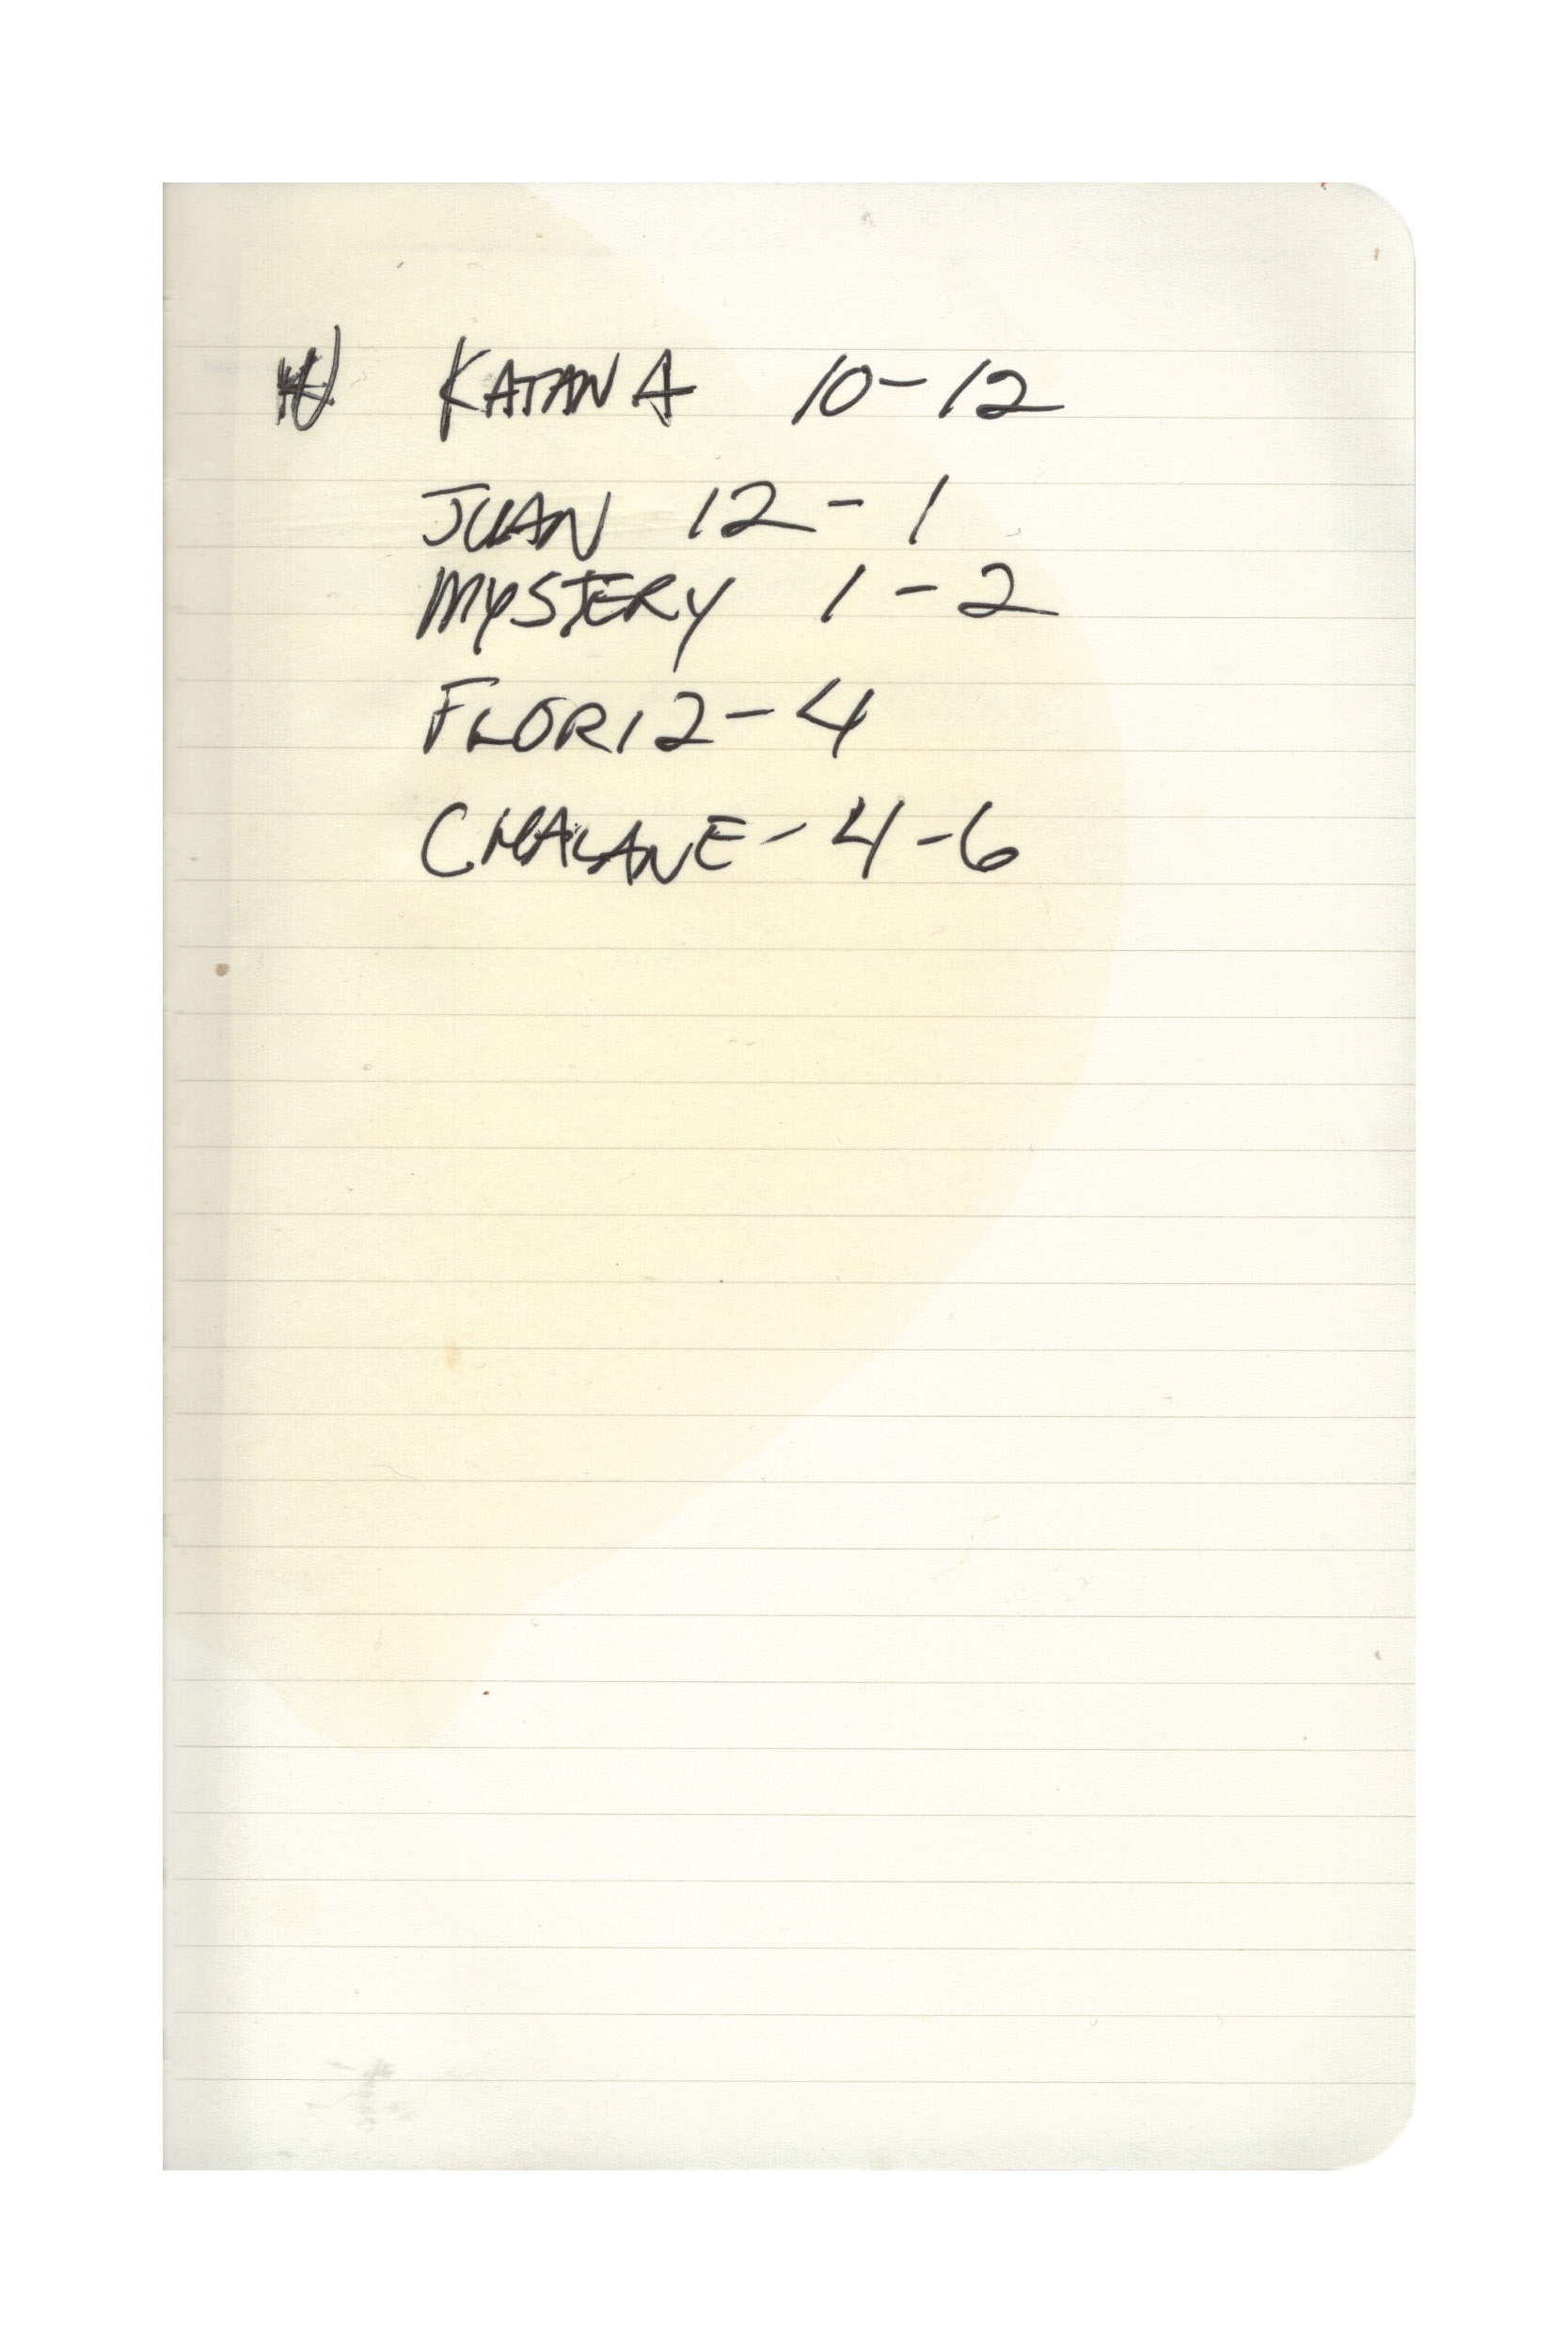 KATANA 10-12
JUAN 12-1
MYSTERY 1-2
FLORI 2-4
CHALANE - 4-6